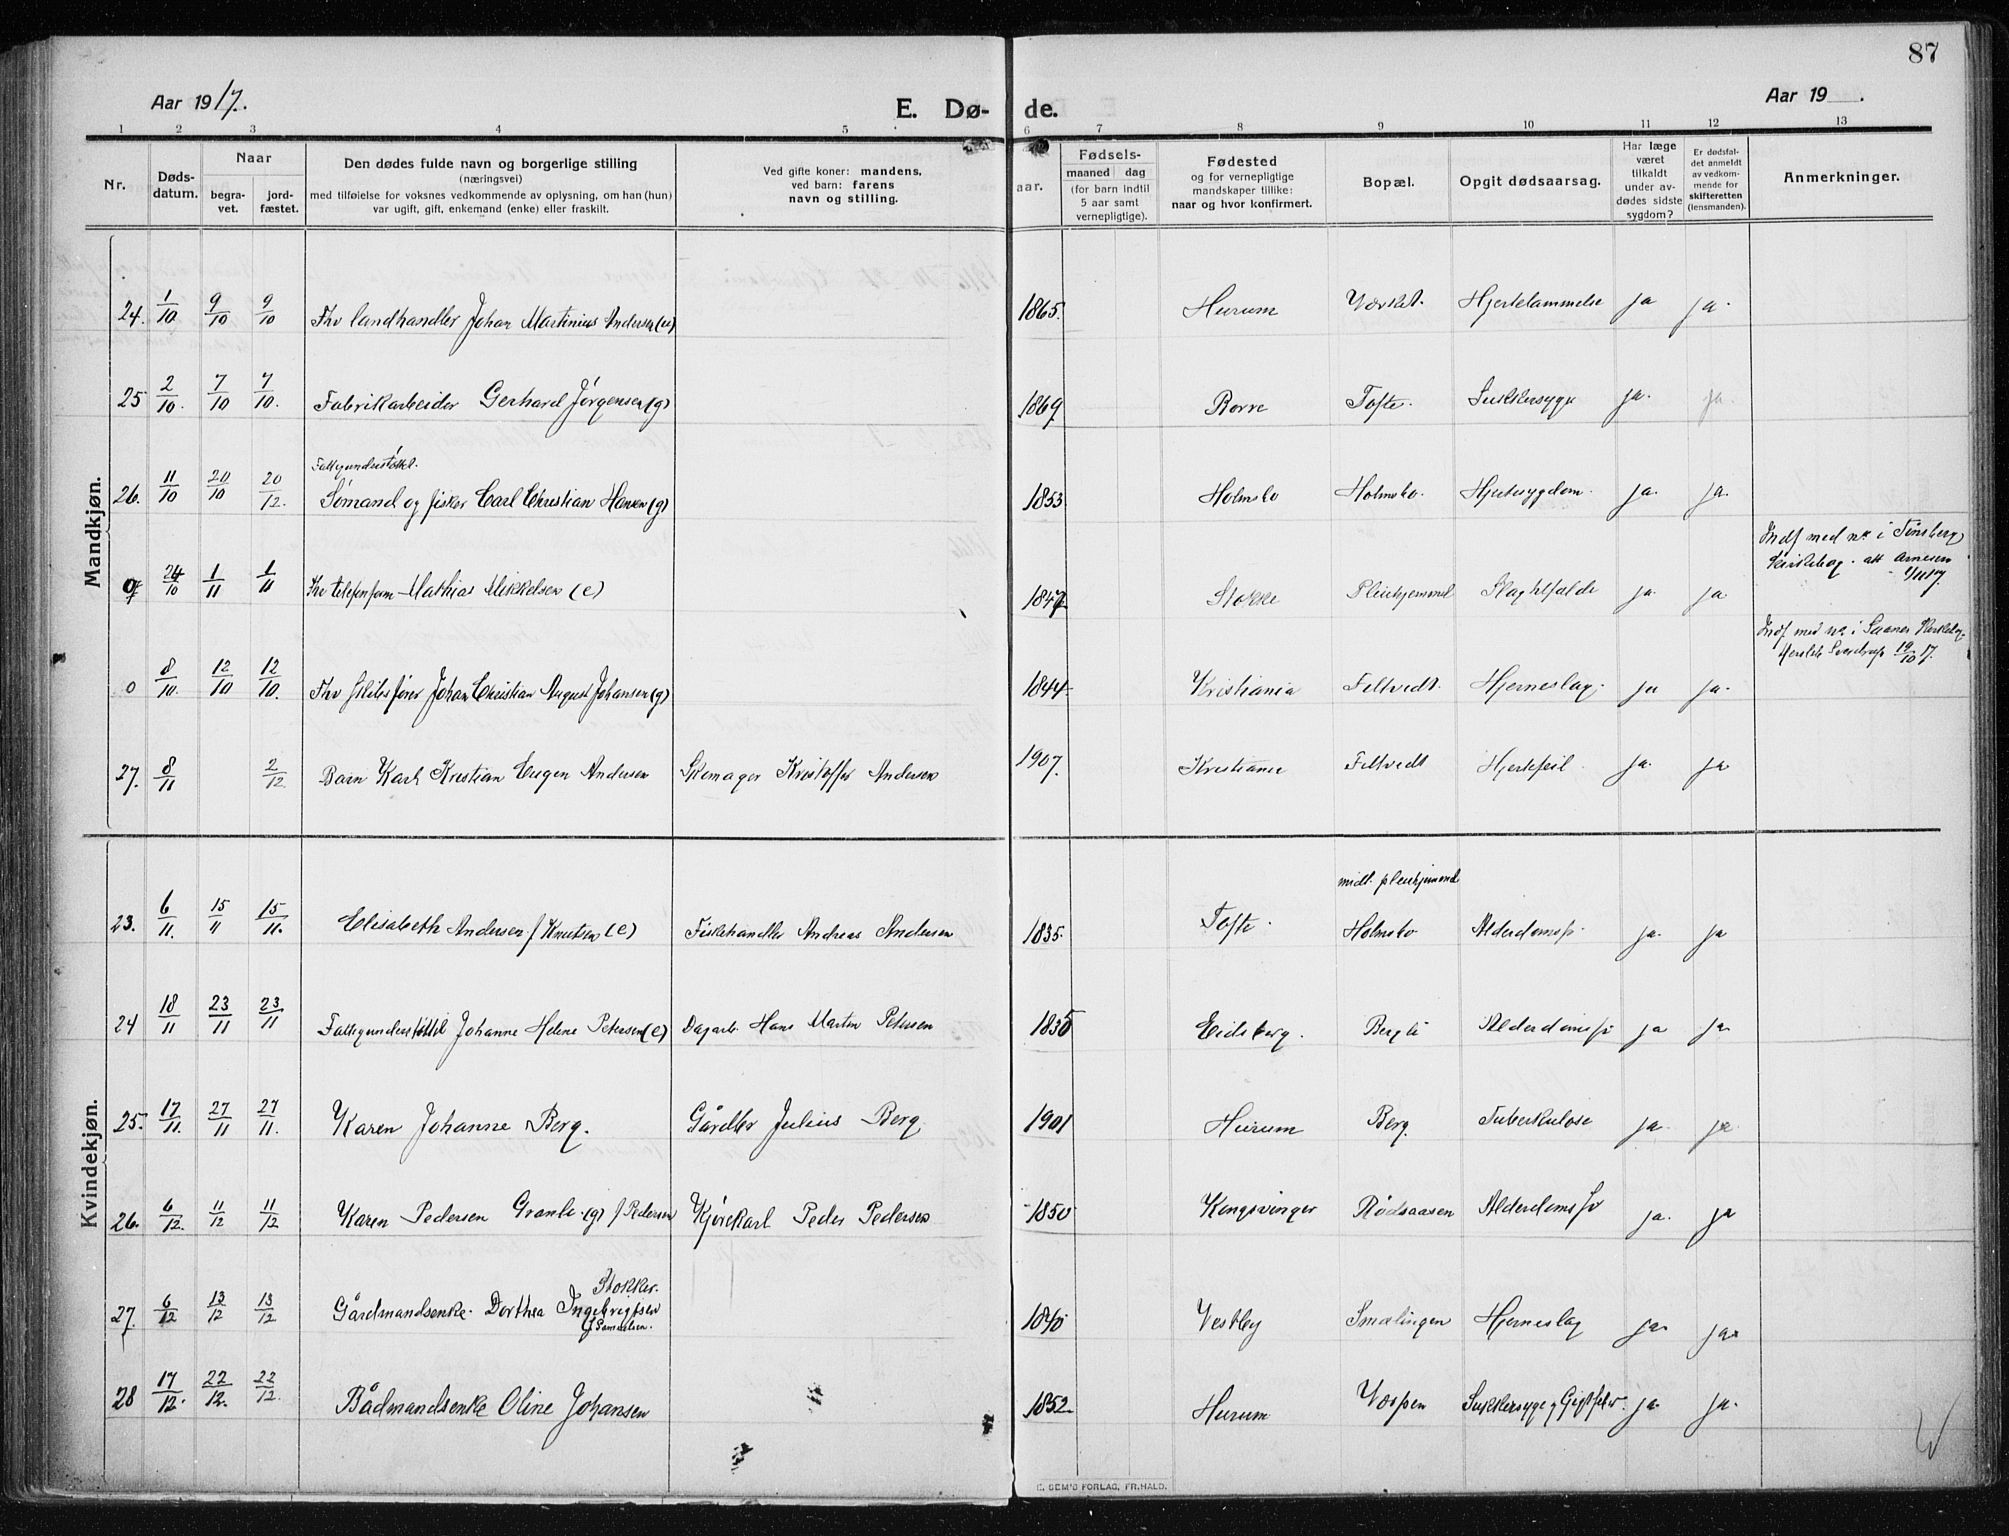 87
Aar 1917.
E. Dø- de.
Aar 19 .
1 2 3 4 5 6 7 8 9 10 11 12 13
Nr.
Døds-
datum.
Naar
begra-
vet.
jord-
fæstet.
Den dødes fulde navn og borgerlige stilling
(næringsvei)
med tilføielse for voksnes vedkommende av oplysning, om han (hun)
var ugift, gift, enkemand (enke) eller fraskilt.
Ved gifte koner: mandens,
ved barn: farens
navn og stilling.
aar.
Fødsels-
maaned dag
(for barn indtil
5 aar samt
vernepligtige).
Fødested
og for vernepligtige
mandskaper tillike:
naar og hvor konfirmert.
Bopæl.
Opgit dødsaarsag.
Har læge
været
tilkaldt
under av-
dødes sidste
sygdom?
Er dødsfal-
det anmeldt
av vedkom-
mende for
skifteretten
(lensmanden).
Anmerkninger.
Mandkjøn.
24. 1/10 9/10 9/10 Fhv landhandler Johan Martinius Andersen (e) 1865. Hurum Værket. Hjertelammelse ja ja.
25 2/10. 7/10 7/10. Fabrikarbeider Gerhard Jørgensen (g) 1869 Borre Tofte. Sukkersyge ja. ja.
Fattigunderstøttet.
26. 11/10 20/10 20/12. Sømand og fisker Carl Christian Hansen (g) 1853 Holmsbo Holmsbo. Hjertesygdom. ja. ja.
Indf med no i Tønsberg
Kirkebog. att Arnesen
1/11 17
0 24/10 1/11 1/11 Mathias Mikkelsen (e) 1847 Stokke Pleiehjemmet Slagtilfælde ja. ja
Indf med no i Saaner Kirkebog.
Sverdrup 19/10 17.
0 8/10. 12/10 12/10. Fhv Johan Christian August Johansen (g) 1844 Kristiania Filtvedt. Hjerneslag. ja ja.
27. 8/11 2/12. Barn Karl Kristian Eugen Andersen Skomager Kristoffer Andersen 1907. Kristiania Filtvedt Hjertefeil ja. ja
Kvindekjøn.
midl. pleiehjemmet
23. 6/11. 15/11 15/11. Elisabeth Andersen f Knutsen (e) Fiskehandler Andreas Andersen 1835. Tofte. Holmsbo Alderdomssv. ja. ja
24 18/11 23/11 23/11 Fattigunderstøttet Johanne Helene Petersen (e) Dagarb. Hans Martin Petersen 1835 Eidsberg. Bergli Alderdomssv ja ja.
25. 17/11. 27/11 27/11. Karen Johanne Berg. Gårdbr Julius Berg. 1901 Hurum Berg. Tuberkulose ja. ja.
26. 6/12. 11/12 11/12 Karen Pedersen Granli (g) f Pedersen Kjørekarl Peder Pedersen 1850 Kongsvinger Rødsaasen Alderdomssv ja. ja
Stokker.
27. 6/12 13/12 13/12 Gårdmandsenke. Dorthea Ingebrigtsen 1840 Vestby Smalingen Hjerneslag ja. ja.
f Samuelsen.
28 17/12. 22/12. 22/12. Bådmandsenke Oline Johansen 1852. Hurum Væspen Sukkersyge og Gigtfeber. ja. ja.
E. SEM'S FORLAG, FR.HALD.